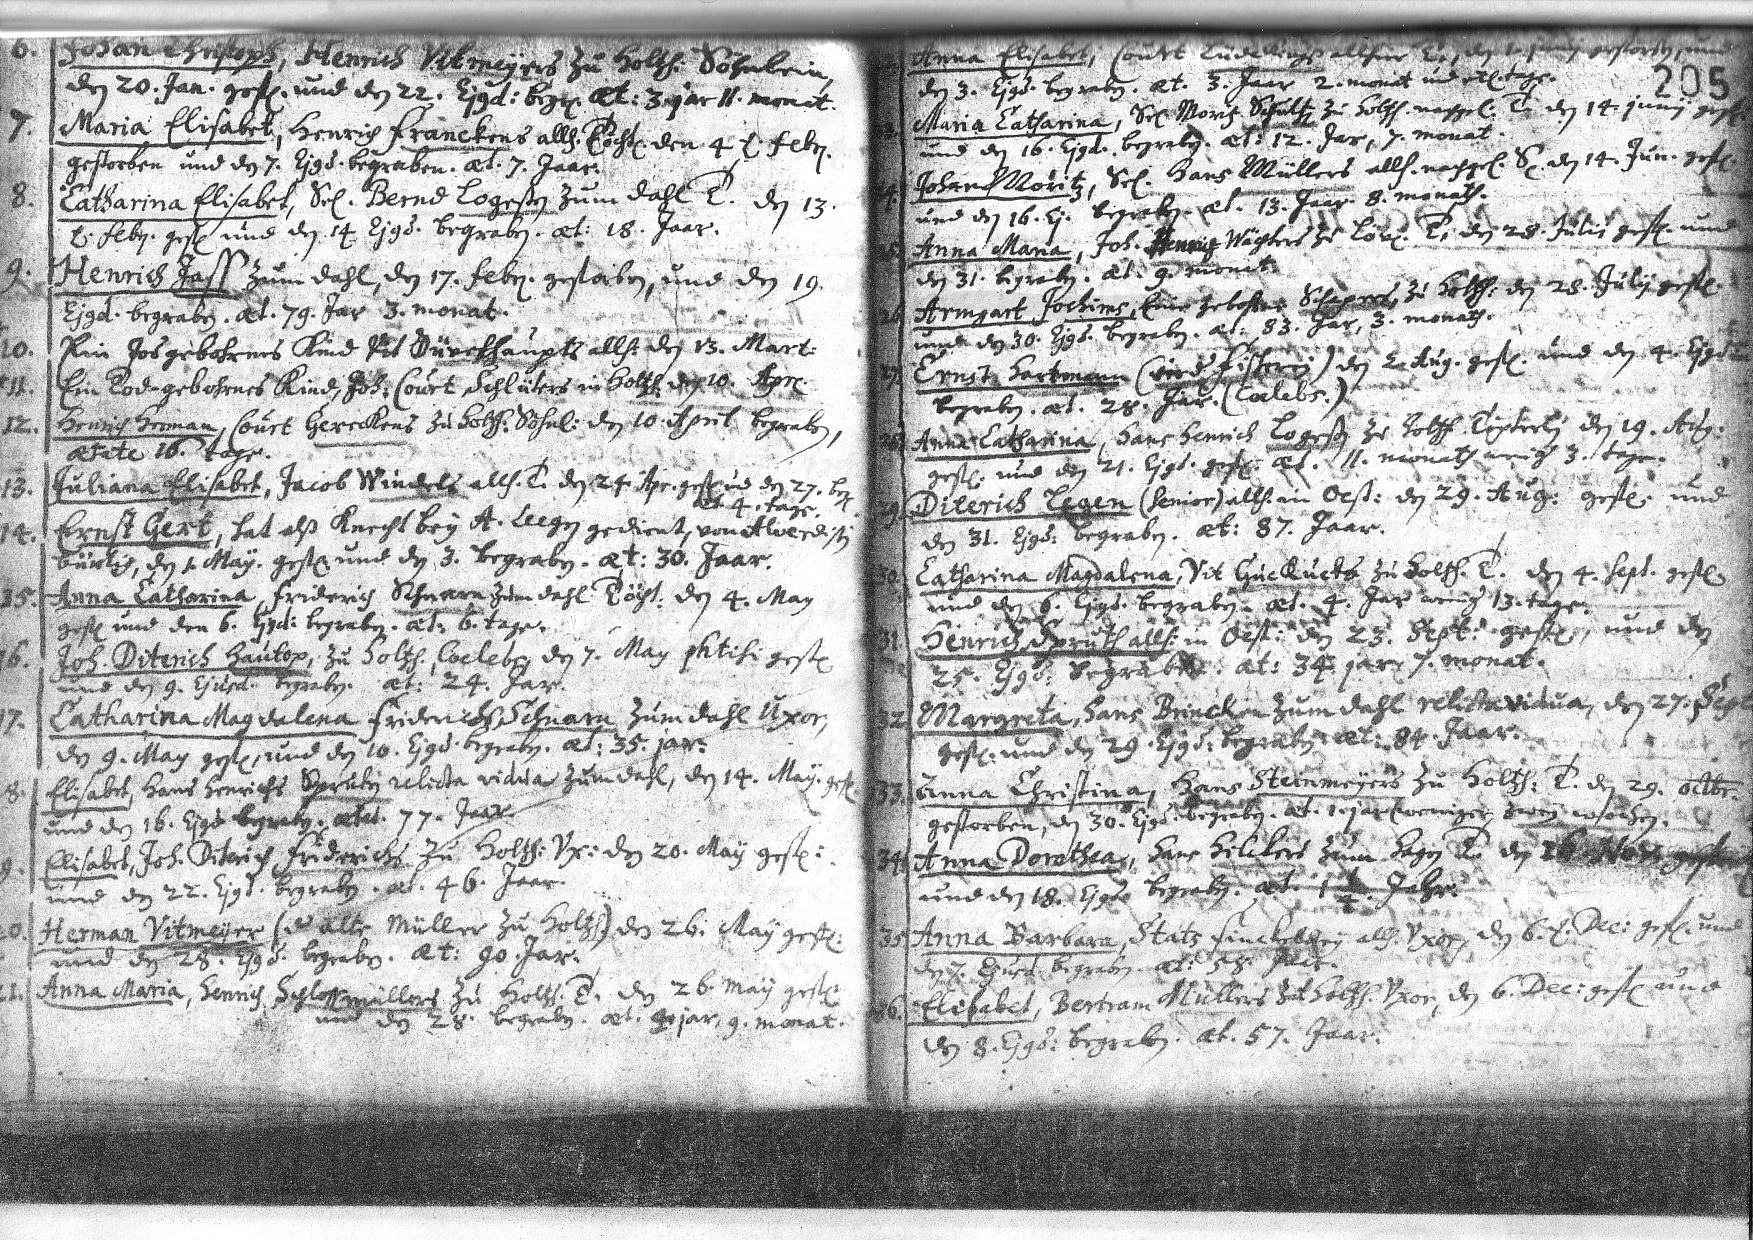 6. Johan Christoph, Henrich Vitmeyers zu Holtzh: Söhnlein,
den 20. Jan. gest. und den 22. Ejgd: begr. æt: 3 jar 11. monat.
7. Maria Elisabet, Henrich Franckens allh. Töcht. den 4 t. febr.
gestorben und den 7. Ejgd. begraben. æt. 7. Jaar.
8. Catharina Elisabet, Sel. Bernd Logesen zum dahl T. den 13.
t. febr. gest. und den 14 Ejgd. begraben. æt: 18. Jaar.
9. Henrich Jass zum dahl, den 17. febr. gestorben, und den 19.
Ejgd. begraben. æt. 79. Jar 3. monat.
10. Ein gebohrnes Kind Vit Süreshaupts allh: den 13. Mart:
11. Ein Todgebohrnes Kind, Joh: Court Schlüters in Holtzh: den 10. Apr.
12. Henrich Herman, Court Gereckens zu Holtzh: Söhnl: den 10. April begraben,
ætate 16. tage.
13. Juliana Elisabet, Jacob Windels allh. T. den 24. Apr. gest. und den 27. begr.
æt 4. tage.
14. Ernst Gert, hat alß Knecht bey A. Leegen gedient, von Alverdissen
bürtig, den 1. May. gest. und den 3. begraben. æt: 30. Jaar.
15. Anna Catharina, Friderich Schnarn zum dahl Töcht. den 4. May
gest. und den 6. Ejgd: begraben. æt: 6. tage.
16. Joh. Diterich Hautop, zu Holtzh: Coelebs, den 7. May phtisi gest.
und den 9. Ejusd. begraben. æt: 24. Jar.
17. Catharina Magdalena Friderichs Schnarn zum dahl Uxor,
den 9. May gest. und den 10. Ejgd. begraben. æt: 35. jar.
8. Elisabet, Hans Henrichs Spruten relicta vidua zum dahl, den 14. May. gest.
und den 16. Ejgd begraben. ætat. 77. Jaar.
9. Elisabet, Joh. Diterich Friderichs zu Holtzh: Ux: den 20. May gest:
und den 22. Ejgd. begraben. æt. 46. Jaar.
20. Herman Vitmeyer (d alte Müller zu Holtzh) den 26. May gest:
und den 28. Ejgd. begraben. æt: 90. Jar.
21. Anna Maria, Henrich Schloßmüllers zu Holtzh. T. den 26 may gest.
und den 28. begraben. æt. jar, 9. monat.
205
Anna Elisabet, Court allhier T., den 1. junij gestorben, und
den 3. Ejgd. begraben. æt. 3. Jaar 2. monat und etl. tage.
Maria Catharina, Sel. Moritz Schultz zu Holtzh. nachgel. T. den 14. junij gest.
und den 16. Ejgd. begraben. æt: 12. Jar, 7. monat.
4. Johan Moritz, Sel. Hans Müllers allh. nachgel. S. den 14. Jun. gest.
und den 16. Ej. begraben. æt. 13. Jaar. 8. monath.
25. Anna Maria, Joh. Henrich T. den 28. Julij gest. und
den 31. begraben. æt: 9. monat
26. Armgart Jochims, Eine gebohrne zu Holtzh: den 28. Julij gest.
und den 30. Ejgd. begraben. æt: 83. Jar, 3. monath.
27. Ernst Hartmann den 2. Aug. gest. und den 4. Ejgd
begraben. æt. 28. Jar. (Coelebs.)
28. Anna Catharina, Hans Henrich Logesen zu Holtzh. Töchterl. den 19. Aug:
gest. und den 21. Ejgd. gest. æt. 11. monath wenig 3. tage.
29. Diterich Legen (Senior) allh. den 29. Aug: gest. und
den 31. Ejgd: begraben. æt: 87. Jaar.
30. Catharina Magdalena, Vit Guckucks zu Holtzh. T. den 4. Sept. gest.
und den 6. Ejgd. begraben. æt. 4. Jar wenig 13. tage.
31. Henrich Spruth allh: den 23. Sept: gest., und den
25. Ejgd: begraben. æt: 34. jar 7. monat.
32. Margreta, Hans Brincken zum dahl relicta vidua, den 27. Sept
gest. und den 29. Ejgd: begraben. æt: 84. Jaar.
33. Anna Christina, Hans Steinmeyers zu Holtzh: T. den 29. octbr.
gestorben, den 30. Ejgd. begraben. æt. 1. jar weniger zwey wochen.
34. Anna Dorothea, Hans Hilckers zum Hagen T. den 16 Nov. gestorben
und den 18. Ejgd. begraben. æt. 1 1/4. Jahr.
35. Anna Barbara, Stats Finckeldey allh. Uxor, den 6. t. Dec: gest. und
den 7. Ejusd begraben. æt: 58. Jaar.
36. Elisabet, Bertram Müllers zu Holtzh. Uxor, den 6. Dec: gest. und
den 8. Ejgd: begraben. æt. 57. Jaar.